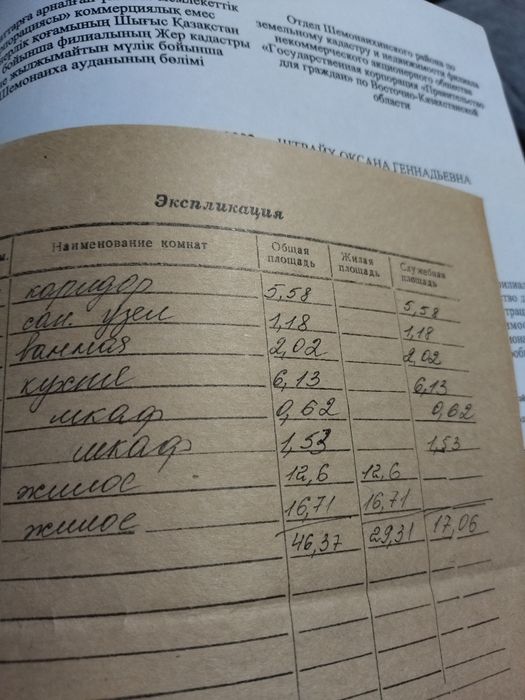 арналған
коммерциялық емес
қоғамының Шығыс Қазақстан
бойынша филиалының Жер кадастры
жылжымайтын мүлік бойынша
Шемонаиха ауданының бөлімі
Отдел Шемонаихинского района по
земельному кадастру и недвижимости филиала
некоммерческого акционерного общества
«Государственная корпорация «Правительство
для граждан» по Восточно-Казахстанской
области
ШТРАЙХ ОКСАНА ГЕННАДЬЕВНА
Экспликация
Наименование комнат Общая площадь Жилая площадь Служебная площадь
коридор 5,58 5,58
сан. узел 1,18 1,18
ванная 2,02 2,02
кухня 6,13 6,13
шкаф 0,62 0,62
шкаф 1,53 1,53
жилое 12,6 12,6
жилое 16,71 16,71
46,37 29,31 17,06